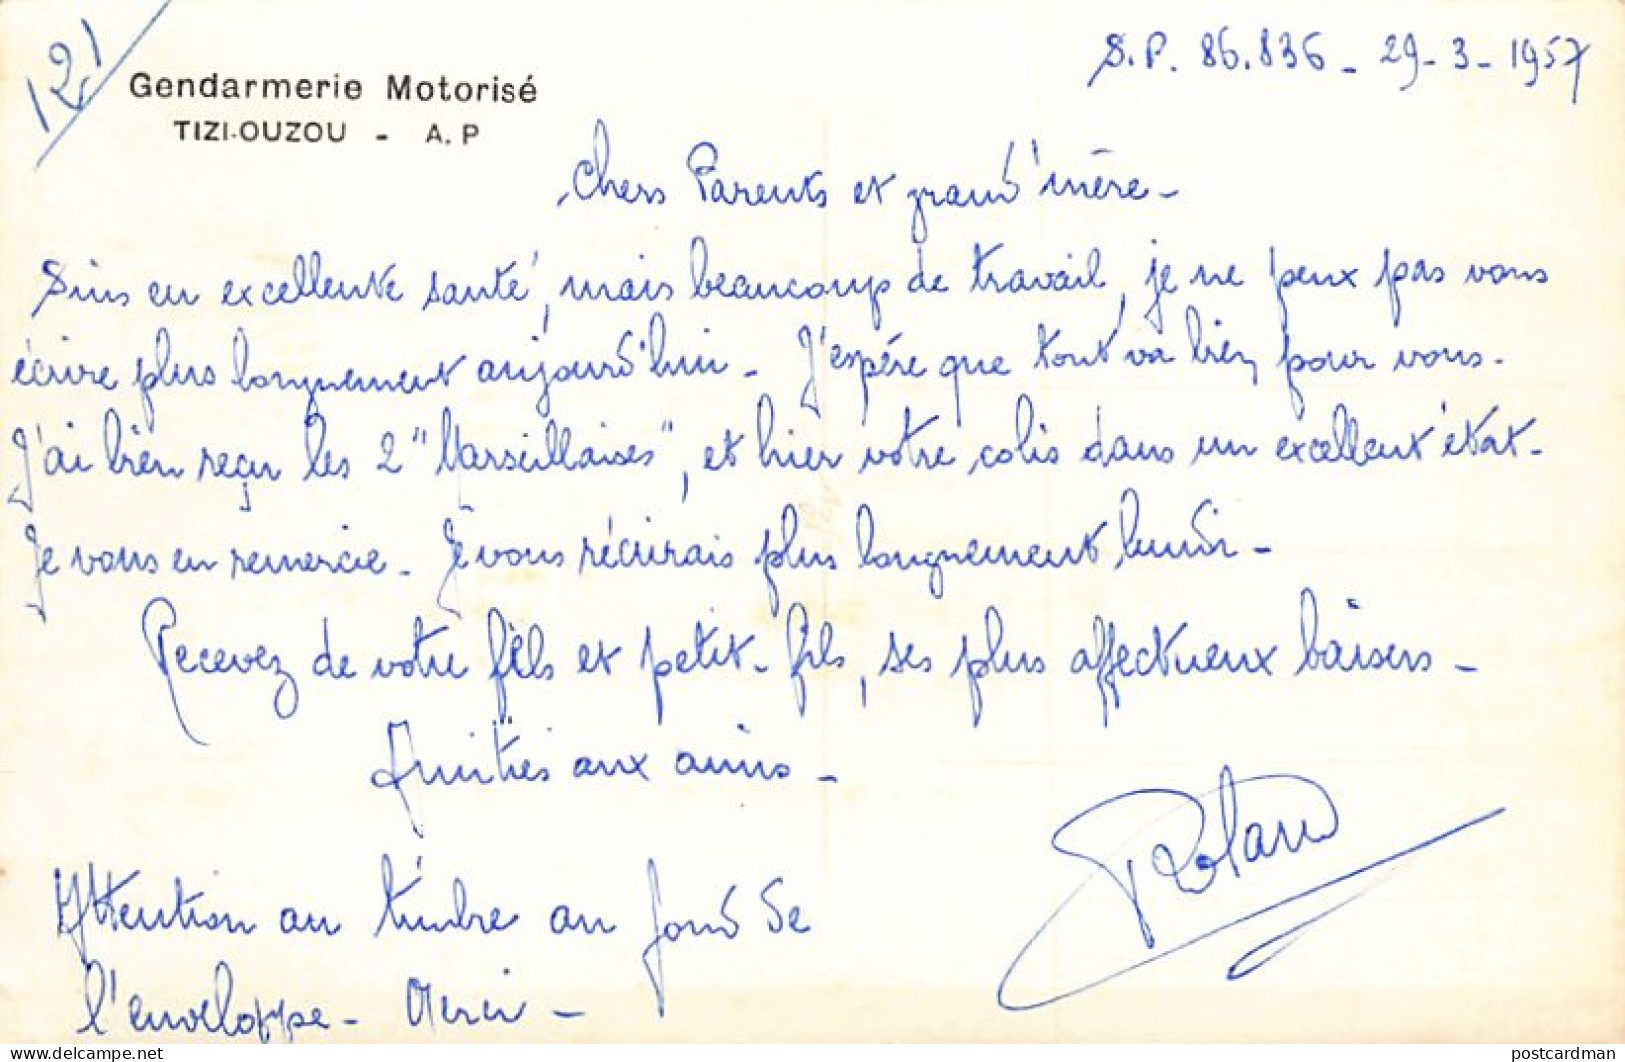 121
Gendarmerie Motorisé
TIZI-OUZOU - A. P
S.P. 86.836 - 29-3-1957
Chers Parents et grand'mère -
Suis en excellente santé, mais beaucoup de travail, je ne peux pas vous
écrire plus longuement aujourd'hui - J'espère que tout va bien pour vous.
J'ai bien reçu les 2 "Marseillaises", et hier votre colis dans un excellent état -
Je vous en remercie - Je vous récrirais plus longuement lundi -
Recevez de votre fils et petit-fils, ses plus affectueux baisers -
Amitiés aux amis -
Roland
Attention au timbre au fond de
l'enveloppe - Merci -
delcampe.net
postcardman